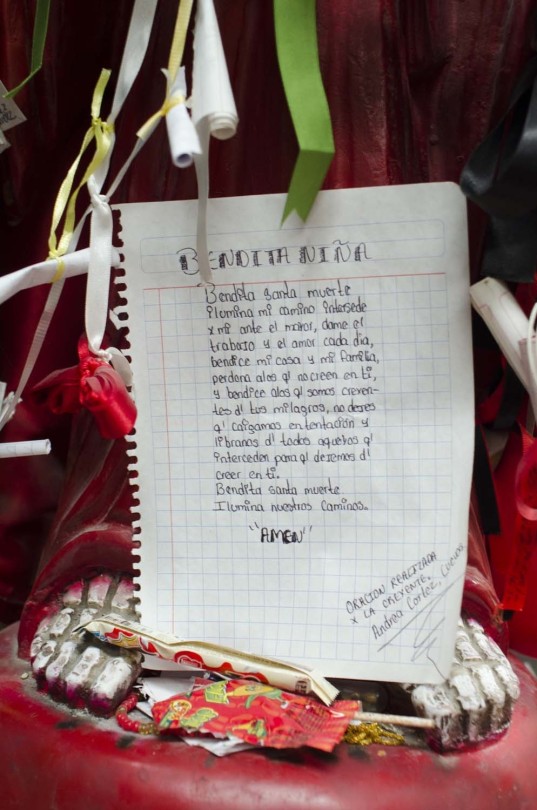 BENDITA NIÑA
Bendita santa muerte
ilumina mi camino intersede
x mi ante el mayor, dame el
trabajo y el amor cada dia,
bendice mi casa y mi familia,
perdona alos q' no creen en ti,
y bendice alos q' somos creyen-
tes d' tus milagros, no dejes
q' caigamos en tentación y
libranos d' todos aquellos q'
interceden para q' dejemos d'
creer en ti.
Bendita santa muerte
Ilumina nuestros caminos.
"AMEN"
ORACION REALIZADA
x LA CREYENTE.
Andrea Cortez,